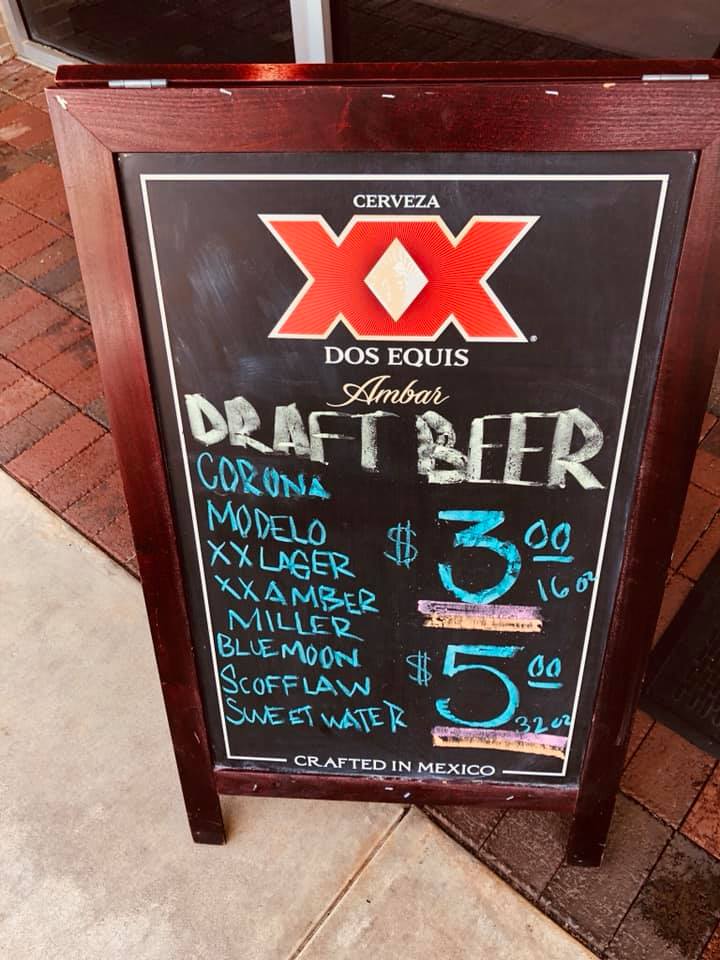 CERVEZA
XX
DOS EQUIS
Ambar
DRAFT BEER
CORONA
MODELO
XX LAGER
XX AMBER
MILLER
BLUE MOON
SCOFFLAW
SWEET WATER
$3.00
16 oz
$5.00
32 oz
CRAFTED IN MEXICO